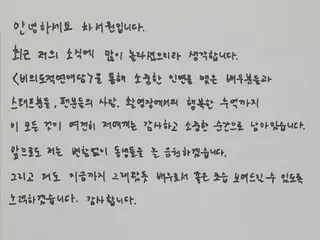 안녕하세요 차서원입니다.
최근 저의 소식에 많이 놀라셨으리라 생각합니다.
<비의도적연애담>을 통해 소중한 인연을 맺은 배우분들과
스태프분들, 팬분들의 사랑, 촬영장에서의 행복한 추억까지
이 모든 것이 여전히 저에게는 감사하고 소중한 순간으로 남아있습니다.
앞으로도 저는 변함없이 동생들을 늘 응원하겠습니다.
그리고 저도 지금까지 그래왔듯 배우로서 좋은 모습 보여드릴 수 있도록
노력하겠습니다. 감사합니다.